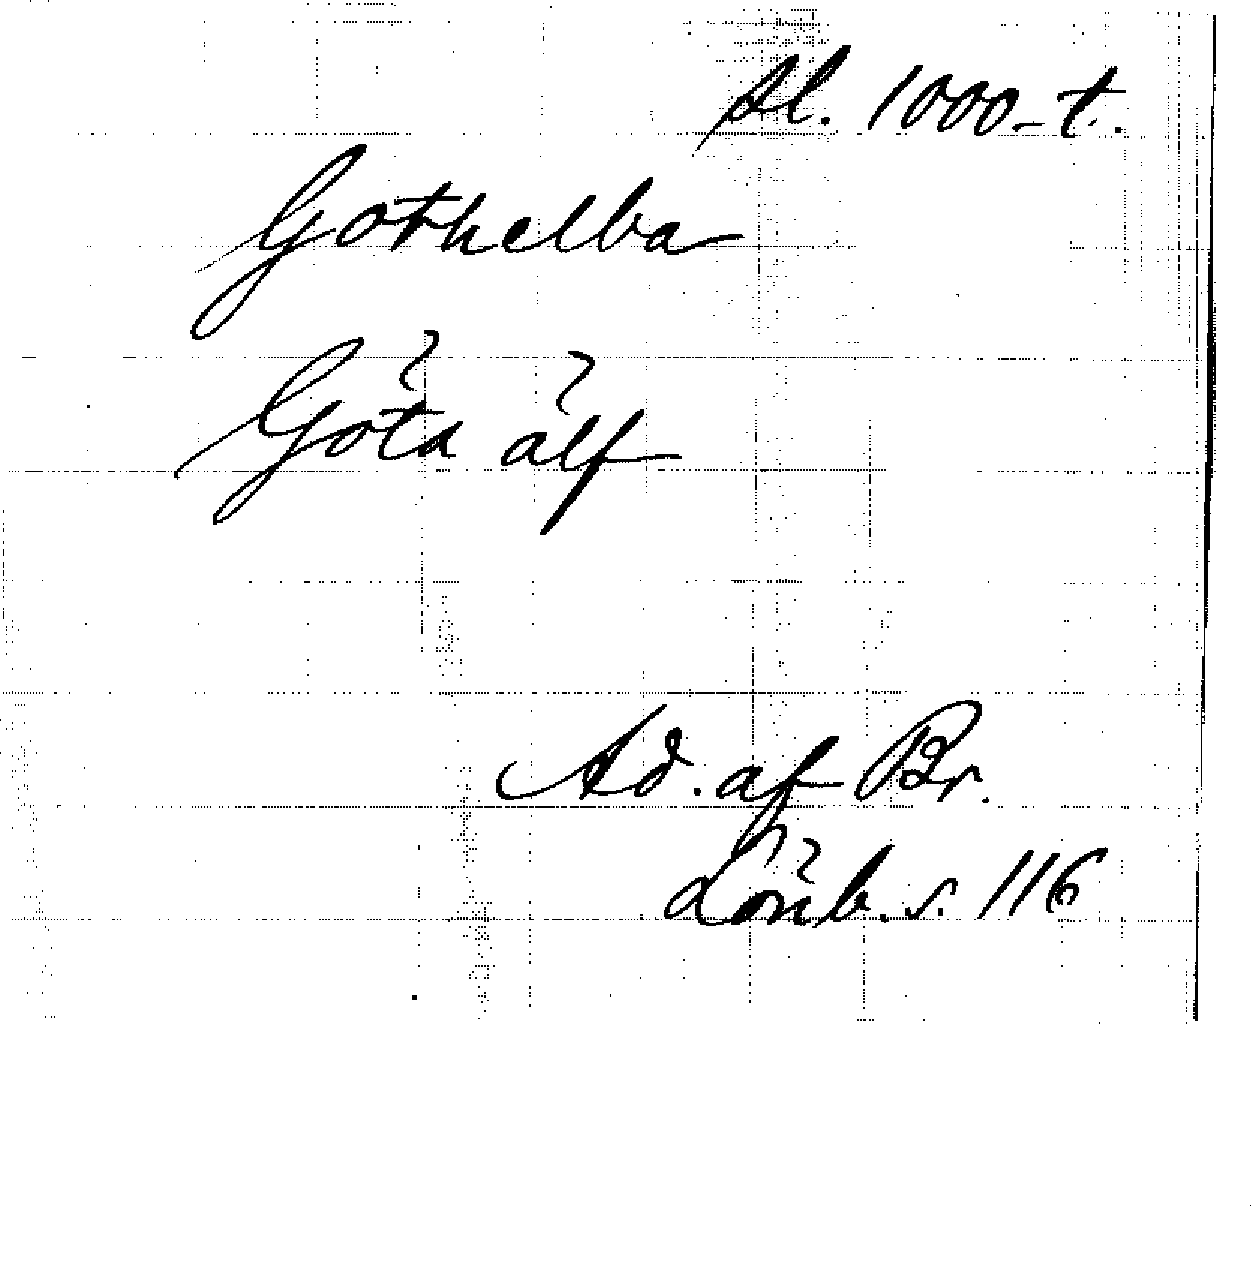 sl. 1000-t.
Gothelba
Göta älf
Ad. af Br.
Lönb. s. 116